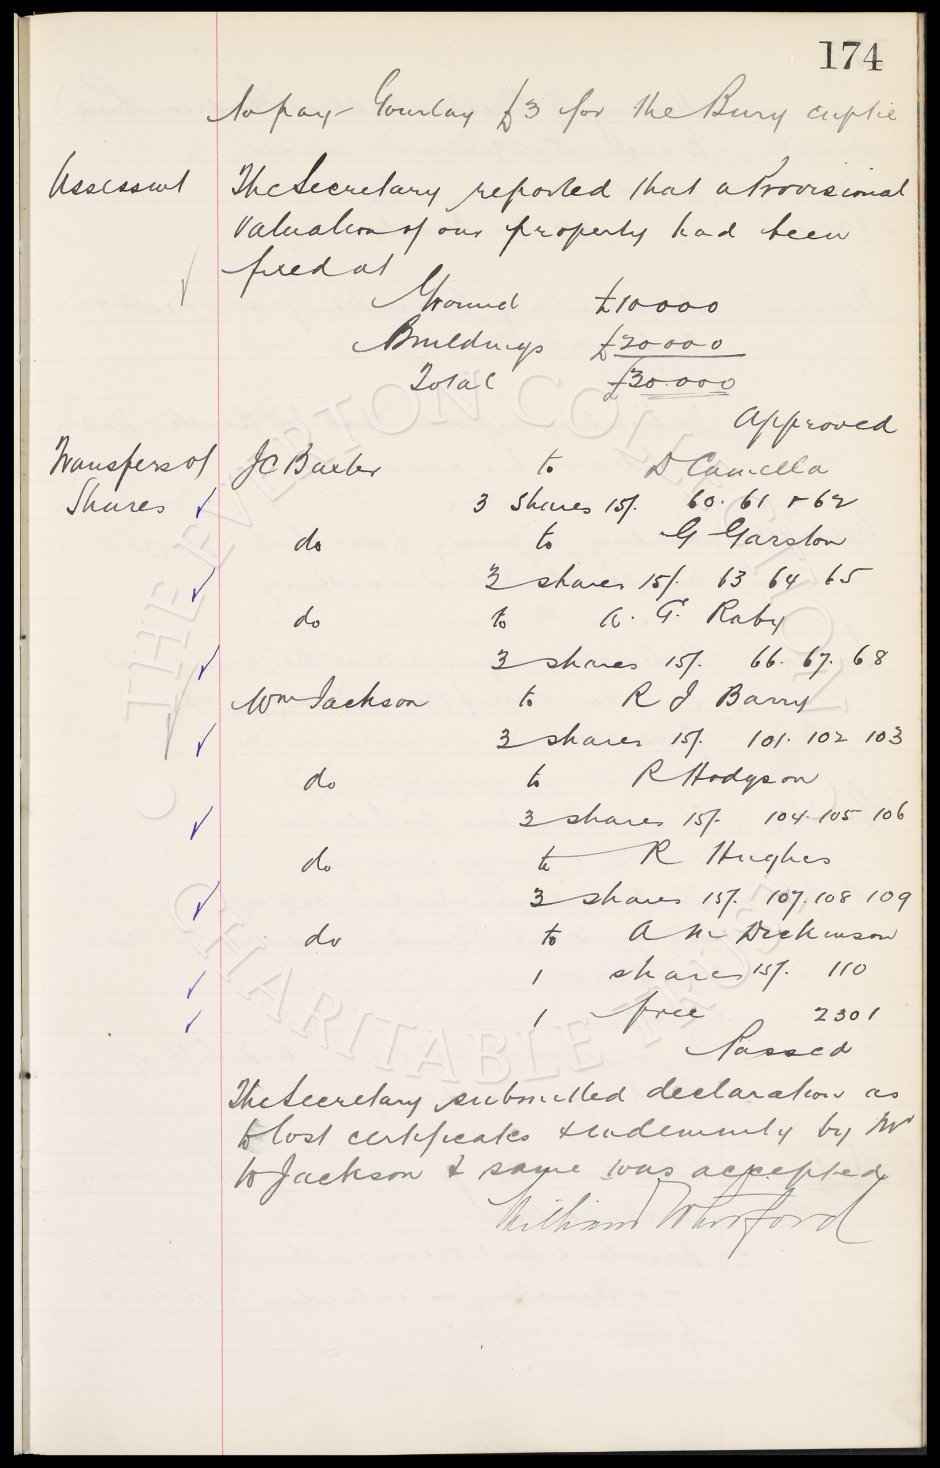 174
to pay Gourlay £3 for the Bury cuptie
Assessmt The Secretary reported that a Provisional
Valuation of our property had been
fixed at
Ground £10000
Buildings £20000
Total £30.000
Approved
Transfers of J C Baxter to D Camella
Shares 3 Shares 15/- 60. 61 & 62
do to G Garston
3 shares 15/- 63 64 65
do to A. G. Raby
3 shares 15/- 66. 67. 68
Wm Jackson to R J Barry
3 shares 15/- 101. 102 103
do to R Hodgson
3 shares 15/- 104. 105 106
do to R Hughes
3 shares 15/- 107. 108 109
do to A M Dickinson
1 shares 15/- 110
1 free 2301
Passed
The Secretary submitted declaration as
to lost certificates & indemnity by Mr
W Jackson & same was accepted
William Whitford
THE EVERTON COLLECTION
CHARITABLE TRUST